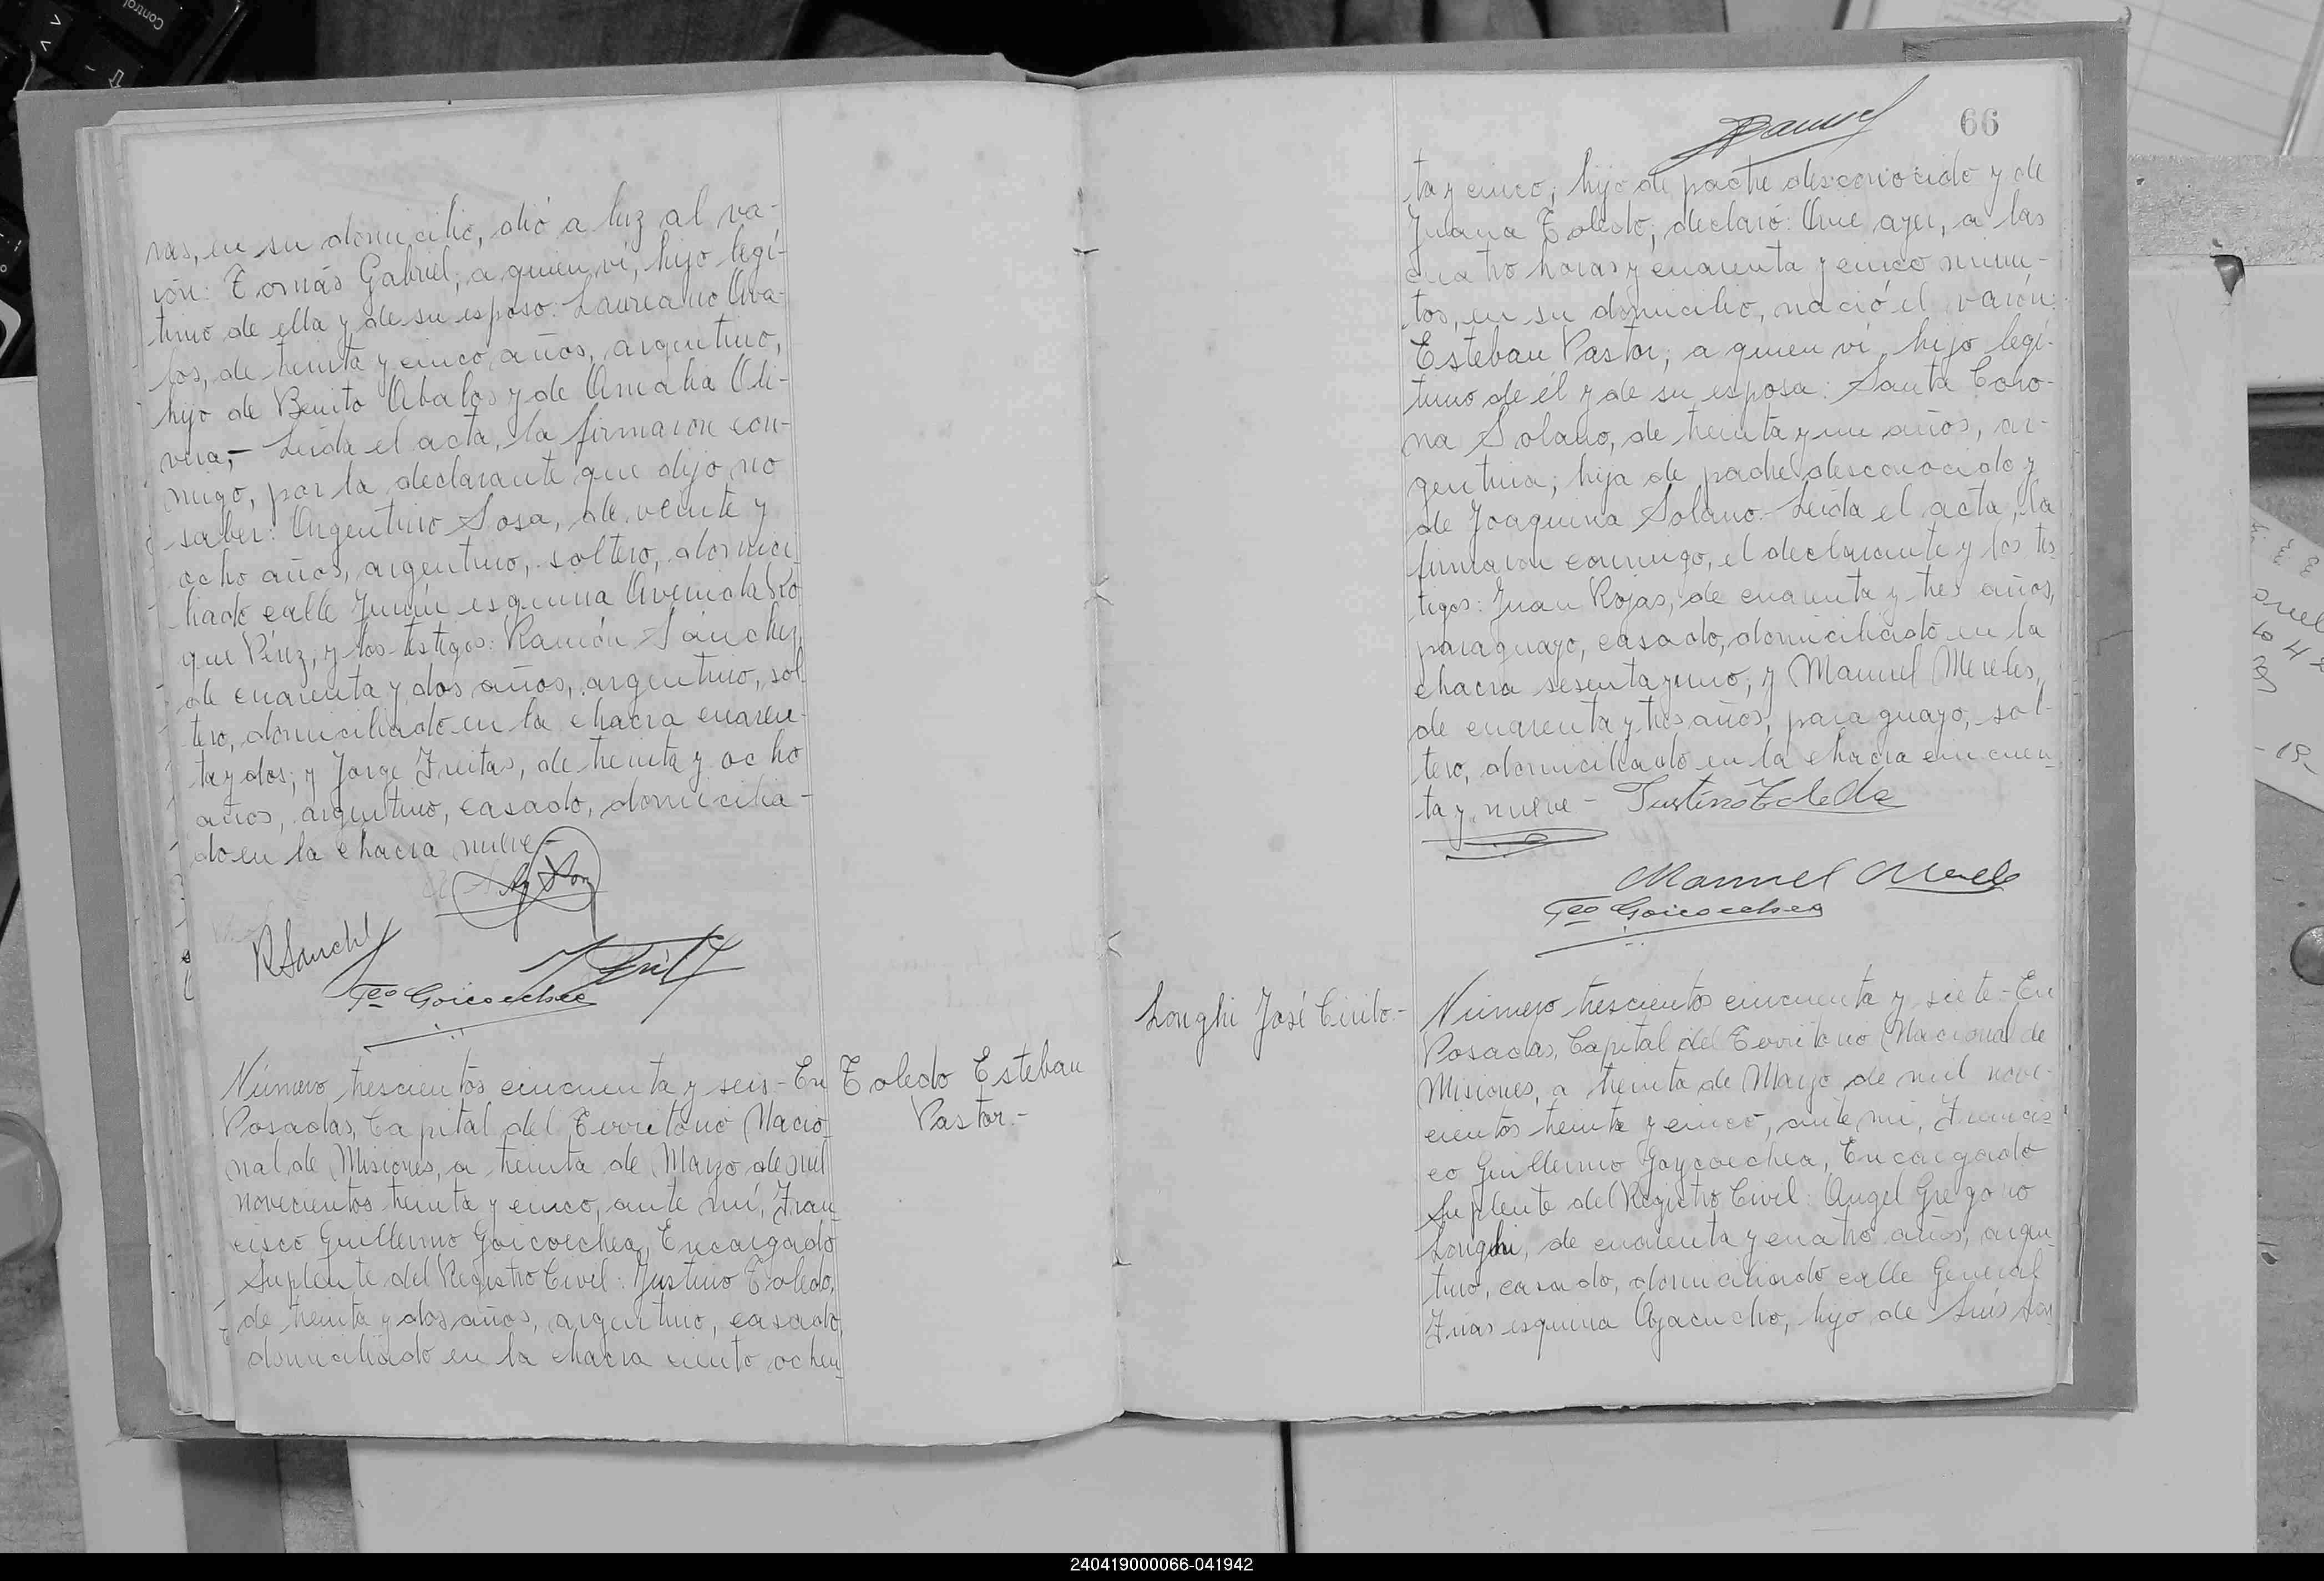 ras, en su domicilio, dió a luz al va-
rón: Tomás Gabriel; a quien ví, hijo legí-
timo de ella y de su esposo: Laureano Ava-
los, de treinta y cinco años, argentino,
hijo de Benito Abalos y de Amalia Oli-
vera.- Leída el acta, la firmaron con-
migo, por la declarante que dijo no
saber: Argentino Sosa, de veinte y
ocho años, argentino, soltero, domici
liado calle Junín esquina Avenida Ro
que Pérez; y los testigos: Ramón Sánchez,
de cuarenta y dos años, argentino, sol
tero, domiciliado en la chacra cuaren-
ta y dos; y Jorge Freitas, de treinta y ocho
años, argentino, casado, domicilia-
do en la chacra nueve.-
R Sanchez
Fco Goicoechea
Número trescientos cincuenta y seis - En
Posadas, Capital del Territorio Nacio
nal de Misiones, a treinta de Mayo de mil
novecientos treinta y cinco, ante mí, Fran
cisco Guillermo Goicoechea, Encargado
Suplente del Registro Civil: Justino Toledo,
de treinta y dos años, argentino, casado,
domiciliado en la chacra ciento ochen
Toledo Esteban
Pastor.-
66
ta y cinco; hijo de padre desconocido y de
Juana Toledo; declaró: Que ayer, a las
cuatro horas y cuarenta y cinco minu-
tos, en su domicilio, nació el varón:
Esteban Pastor; a quien ví, hijo legí-
timo de él y de su esposa: Santa Coro-
na Solano, de treinta y un años, ar-
gentina; hija de padre desconocido y
de Joaquina Solano.- Leída el acta, la
firmaron conmigo, el declarante y los tes
tigos: Juan Rojas, de cuarenta y tres años,
paraguayo, casado, domiciliado en la
chacra sesenta y uno; y Manuel Mereles,
de cuarenta y tres años, paraguayo, sol-
tero, domiciliado en la chacra cincuen
ta y nueve - Justino Toledo
Manuel Merele
Fco Goicoechea
Longhi José Cirilo.-
Número trescientos cincuenta y siete - En
Posadas, Capital del Territorio Nacional de
Misiones, a treinta de Mayo de mil nove-
cientos treinta y cinco, ante mí, Francis
co Guillermo Goycoechea, Encargado
Suplente del Registro Civil: Angel Gregorio
Longhi, de cuarenta y cuatro años, argen
tino, casado, domiciliado calle General
Frías esquina Ayacucho, hijo de Luís Lon
240419000066-041942